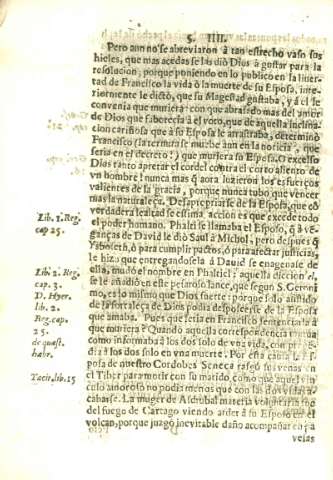 §. IIII.
Pero aun no se abreviaron à tan estrecho vaso sus
hieles, que mas acedas se las diò Dios à gustar para la
resolucion, porque poniendo en lo publico en la liber-
tad de Francisco la vida ò la muerte de su Esposa, inte-
riormente le dictò, que su Magestad gustaba, y à el le
convenia que muriera: con que abrasado mas del amor
de Dios que faborecia à el voto, que de aquella inclina-
cion cariñosa que à su Esposa le arrastraba, determinò
Francisco (la ternura se turbe aun en la noticia, que
seria en el decreto?) que muriera su Esposa. O excelso
Dios tanto apretar el cordel contra el corto aliento de
vn hombre! nunca mas q̃ aora luzieron los esfuerços
valientes de la gracia, porque nunca tubo que vencer
mas la naturaleza. Desapropriarse de la Esposa, que cõ
verdadera lealtad se estima, accion es que excede todo
el poder humano. Phalti se llamaba el Esposo, q̃ à vẽ-
ganças de David le diò Saul à Michol, pero despues q̃
Ysboseth, ò para cumplir pactos, ò para afectar justicias,
le hizo que entregandosela à David se enagenase de
ella, mudò el nombre en Phaltiel; aquella diccion el,
se le añadiò en este pesaroso lance, que segun S. Geroni
mo, es lo mismo que Dios fuerte: porque solo asistido
de la fortaleça de Dios podia desposerse de la Esposa
que amaba. Pues que seria en Francisco sentenciarla à
que muriera? Quando aquella correspondencia mutua
como informaba à los dos solo de vna vida, con pen-
dia à los dos solo en vna muerte. Por esta causa la Es-
posa de nuestro Cordobes Seneca rasgò sus venas en
el Tiber para morir con su matido, como que aquel vin-
culo amoroso no podia menos que con las dos vidas a-
cabarse. La muger de Asdrubal materia voluntaria fue
del fuego de Cartago viendo arder à su Esposo en el
volcan, porque juzgò inevitable daño acompañar en pa
velas
Lib. 2. Reg.
cap 25.
Libi 2. Reg.
cap. 3.
D. Hyer.
lib. 2.
Reg. cap.
25.
de quæst.
habr.
Tacit. lib. 15